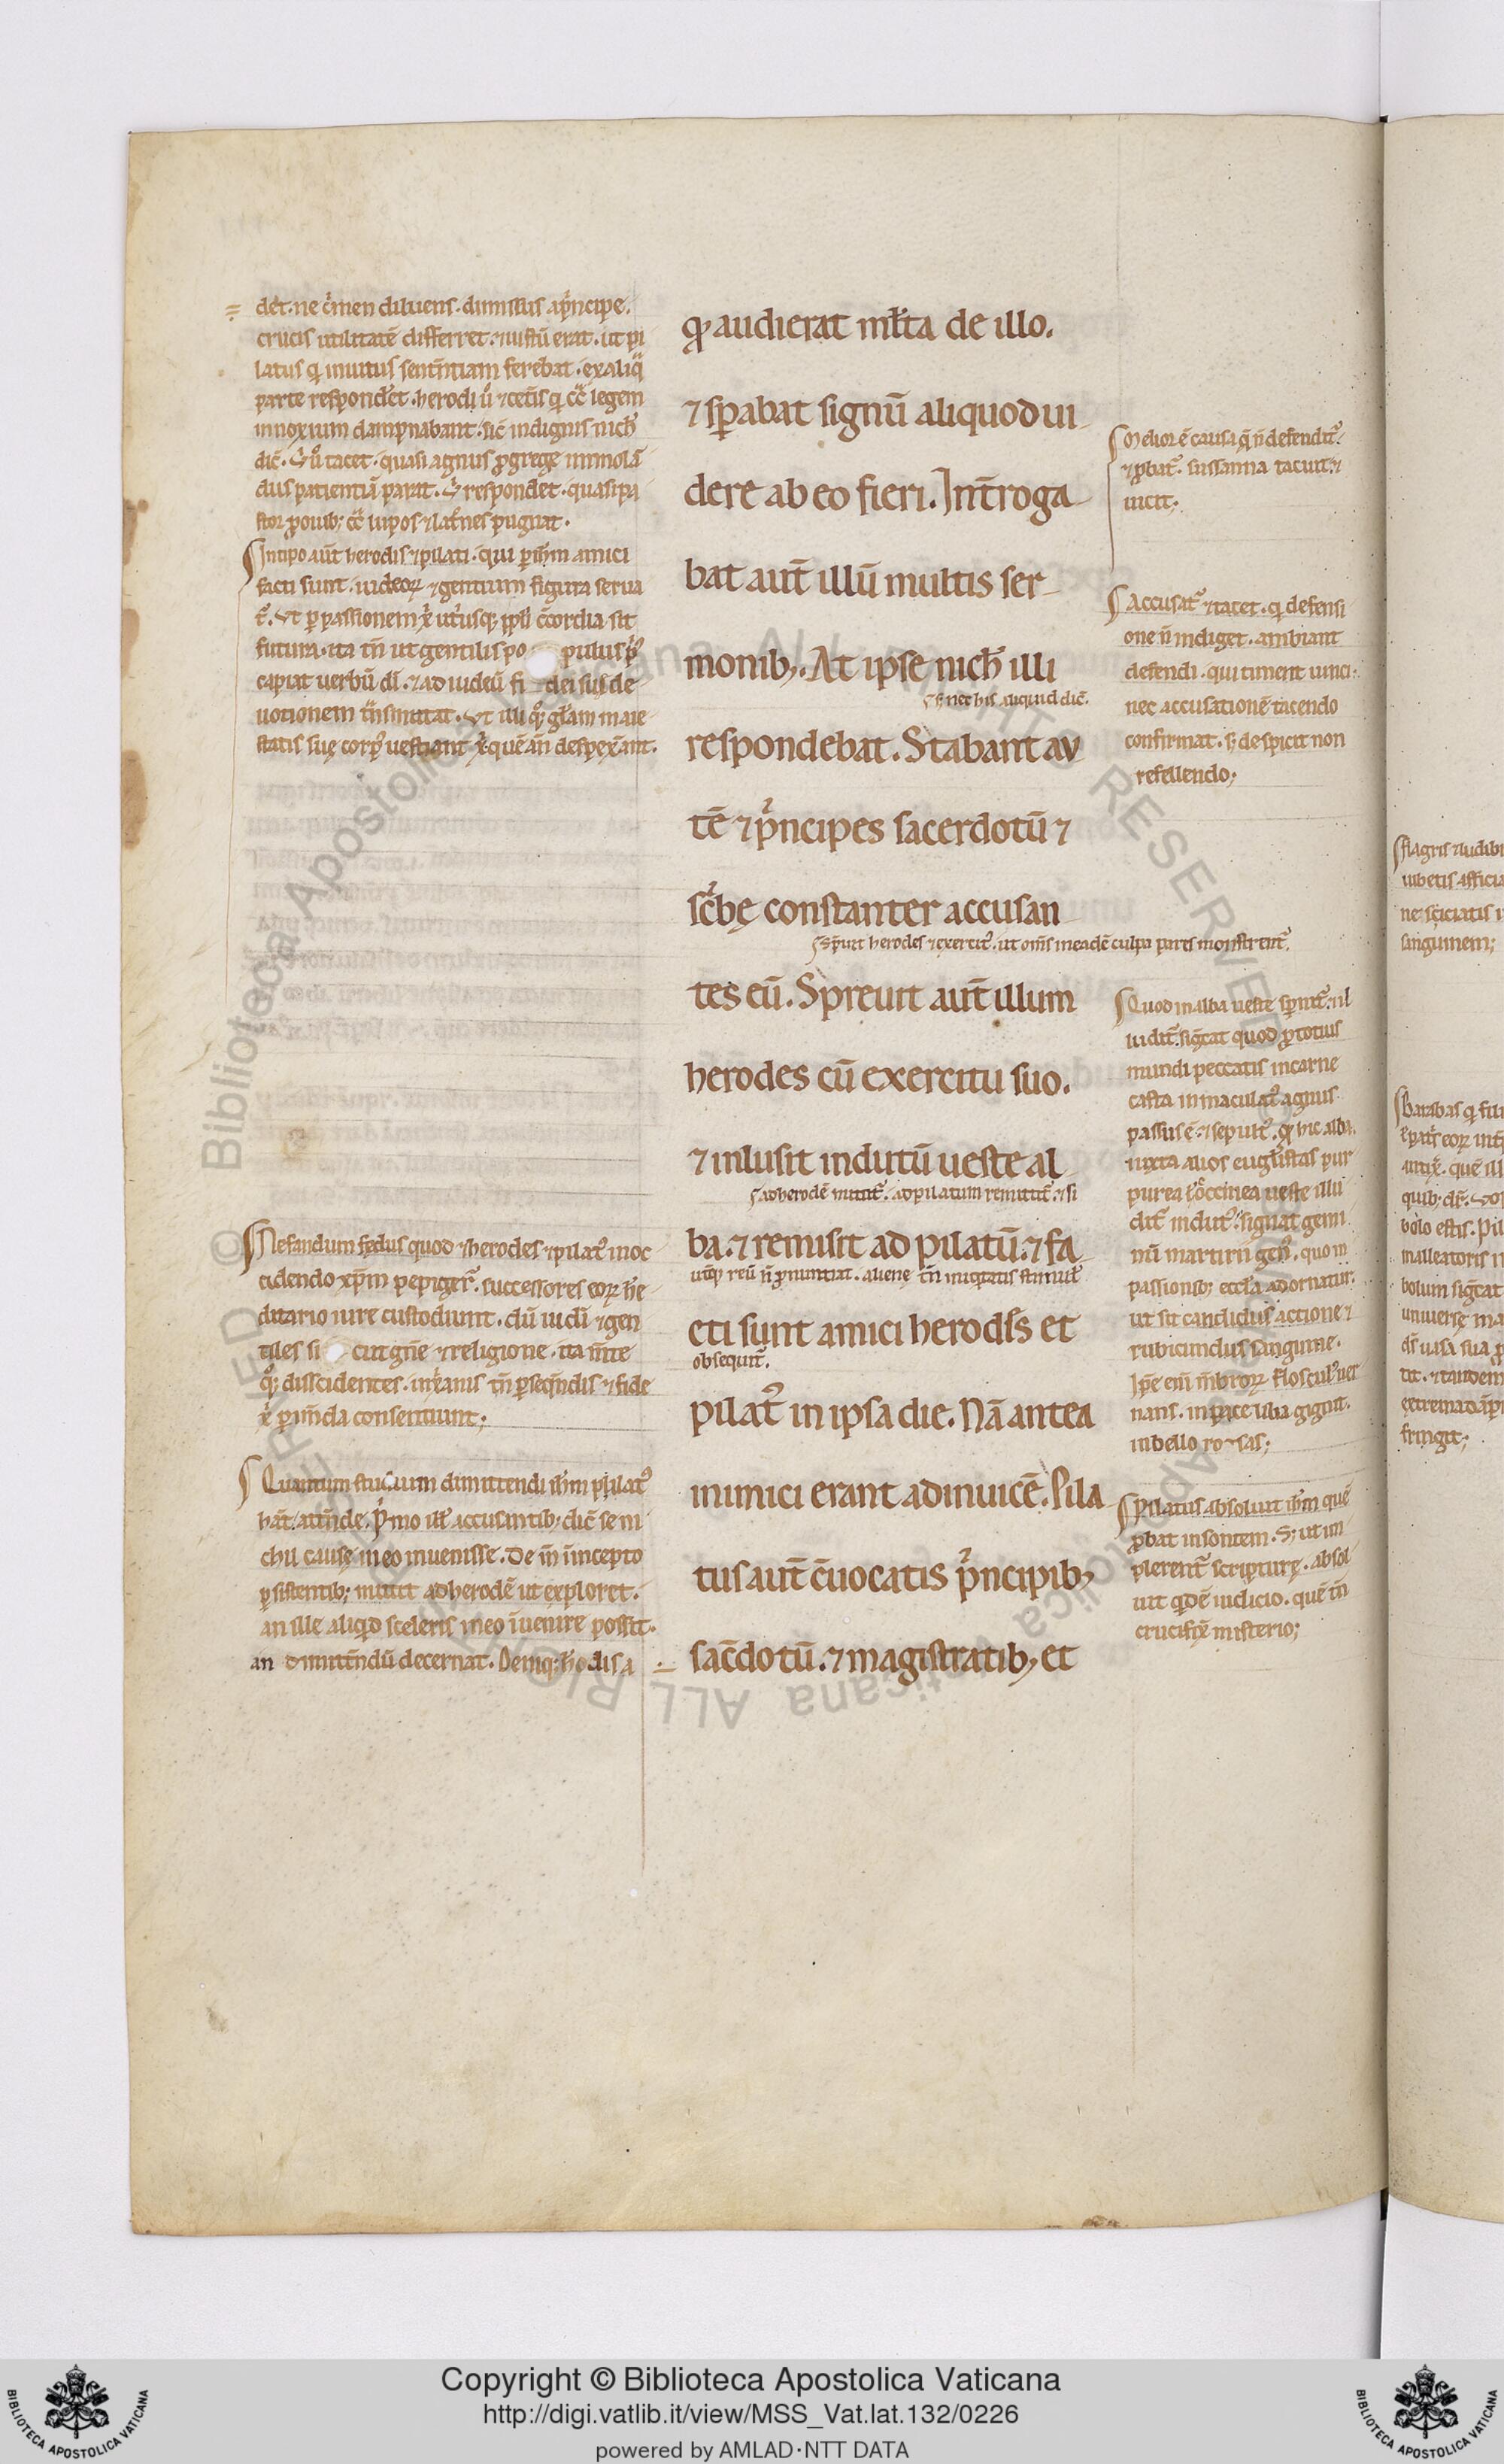 det. ne c̓men diluens. dimissus ap̓ncipe.
crucis utilitatē differret. ⁊ iustū erat. ut pi
latus q̇ inuitus sent̄ntiam ferebat. exaliq̈
parte respond̓et. herodi u̓ ⁊ cet̄is
innoxium dampnabant. sic̄ indignis nich̓
dic̄. tacet. quasi agnus ꝓgrege immolā
dus patientiā parat. respondet. quasi pa
stor ꝓouib; lupos ⁊ lat̓nes pugnat.
Intipo aut̄ herodis ⁊ pilati. qui ꝑ ih̄m amici
facti sunt. iudeoꝝ ⁊ gentium figura serua
t᷒. Vt ꝑ passionem x̓ ut̓usq; ppl̓i c̄cordia sit
futura. ita tn̄ ut gentilis po pulus p̓
capiat uerbū dī. ⁊ ad iudeū fi dei sue de
uotionem tn̄smittat. Vt illi q̊; gl̄am maie
statis suę corp᷒ uestiant x̓ quē an̄ despex̓ant.
Nefandum fędus quod ⁊ herodes ⁊ pilat᷒ inoc
cidendo xp̄m pepiger̄. successores eoꝝ h̓e
ditario iure custodiunt. dū iud̄i ⁊ gen
tiles si cut gn̄e ⁊ religione. ita m̄te
q̊; dissidentes. inx̓anis tn̄ ꝑseq̄ndis ⁊ fide
x̓ ꝑim̄da consentiunt;
Quantum studium dimittendi ih̄m pilat᷒
p̓mo ill̓ accusantib; dic̄ se ni
chil causę ineo inuenisse. De in̄ īincepto
ꝑsistentib; mittit ad herodē ut exploret.
an ille aliq̇d sceleris ineo īuenire possit.
an dimittēdū decernat. Deniq; h̓odis a
q̇ audierat ml̓ta de illo.
⁊ sꝑabat signū aliquod ui
dere ab eo fieri. Int̄roga
bat aut̄ illū multis ser
monib;. At ipse nich̓ illi
nec his aliquid dic̄.
respondebat. Stabant au
tē ⁊ p̓ncipes sacerdotū ⁊
sc̓bę constanter accusan
sp̄uit herodes ⁊ exercit᷒. ut om̄s ineadē culpa pares monstrent᷒.
tes eū. Spreuit aut̄ illum
herodes cū exercitu suo.
⁊ inlusit indutū ueste al
ad herodē mittit᷒. ad pilatum remittit᷒. ⁊ si
ba. ⁊ remisit ad pilatū. ⁊ fa
ut̓q; reū n̄ ꝓnuntiat. alienę tn̄ iniq̇tatis
cti sunt amici herodes et
obsequit᷒.
pilat᷒ in ipsa die. Nā antea
inimici erant adinuicē. Pila
tus aut̄ c̄uocatis p̓ncipib;
sac̄dotū. ⁊ magistratib; et
Melior ē causa q̄ n̄ defendit᷒.
⁊ ꝓbat᷒. sussanna tacuit. ⁊
uicit;
Accusat᷒ ⁊ tacet. q̇ defensi
one n̄ indiget. ambiant
defendi. qui timent uinci.
nec accusationē tacendo
confirmat. s; despicit non
refellendo;
Quod in alba ueste sp̄nit᷒. il
ludit᷒. sig̓cat quod ꝓ totius
mundi peccatis incarne
casta inmaculat᷒ agnus
passus ē. ⁊ sepult᷒. hic alba.
iuxta alios eugl̓istas pur
purea l̓ coccinea ueste illu
dit᷒ indut᷒. signat gemi
nū martirii gen᷒. quo in
passionib; eccl̓a adornatur.
ut sit candidus actione ⁊
rubicundus sanguine.
Ip̄e eni m̄broꝝ floscul᷒ uer
nans. in pace lilia gignit.
in bello ro sas;
Pilatus absoluit ih̄m quē
ꝓbat insontem. S; ut im
plerent᷒ scripturę. absol
uit q̇dē iudicio. quē tn̄
crucifix̓ misterio;
Flagris ⁊ ludib
iubetis afficia
ne sciciatis
sanguinem;
Barabas q̇ fili
ē patris eoꝝ int̄
antix̓. quē ill
quib; dr̄.
bolo estis. Pil
malleatoris
bolum sig̓cat
uniuersę ma
ds̄ uisa sua
tit. ⁊ tandem
extrema
fringit;
Copyright © Biblioteca Apostolica Vaticana
http://digi.vatlib.it/view/MSS_Vat.lat.132/0226
powered by AMLAD·NTT DATA
BIBLIOTECA APOSTOLICA VATICANA
BIBLIOTECA APOSTOLICA VATICANA